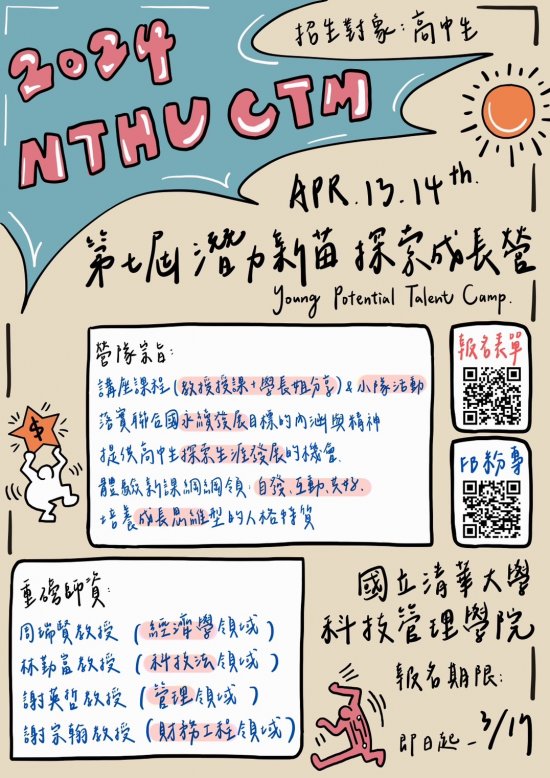 2024
NTHU CTM
招生對象：高中生
APR.13.14th.
第七屆 潛力新苗 探索成長營
Young Potential Talent Camp.
營隊宗旨：
講座課程(教授授課+學長姐分享)&小隊活動
落實聯合國永續發展目標的內涵與精神
提供高中生探索生涯發展的機會.
體驗新課綱綱領：自發.互動.共好.
培養成長思維型的人格特質
報名表單
FB粉專
重磅師資：
周瑞賢教授 (經濟學領域)
林勤富教授 (科技法領域)
謝英哲教授 (管理領域)
謝宗翰教授 (財務工程領域)
國立清華大學
科技管理學院
報名期限：
即日起－3/17